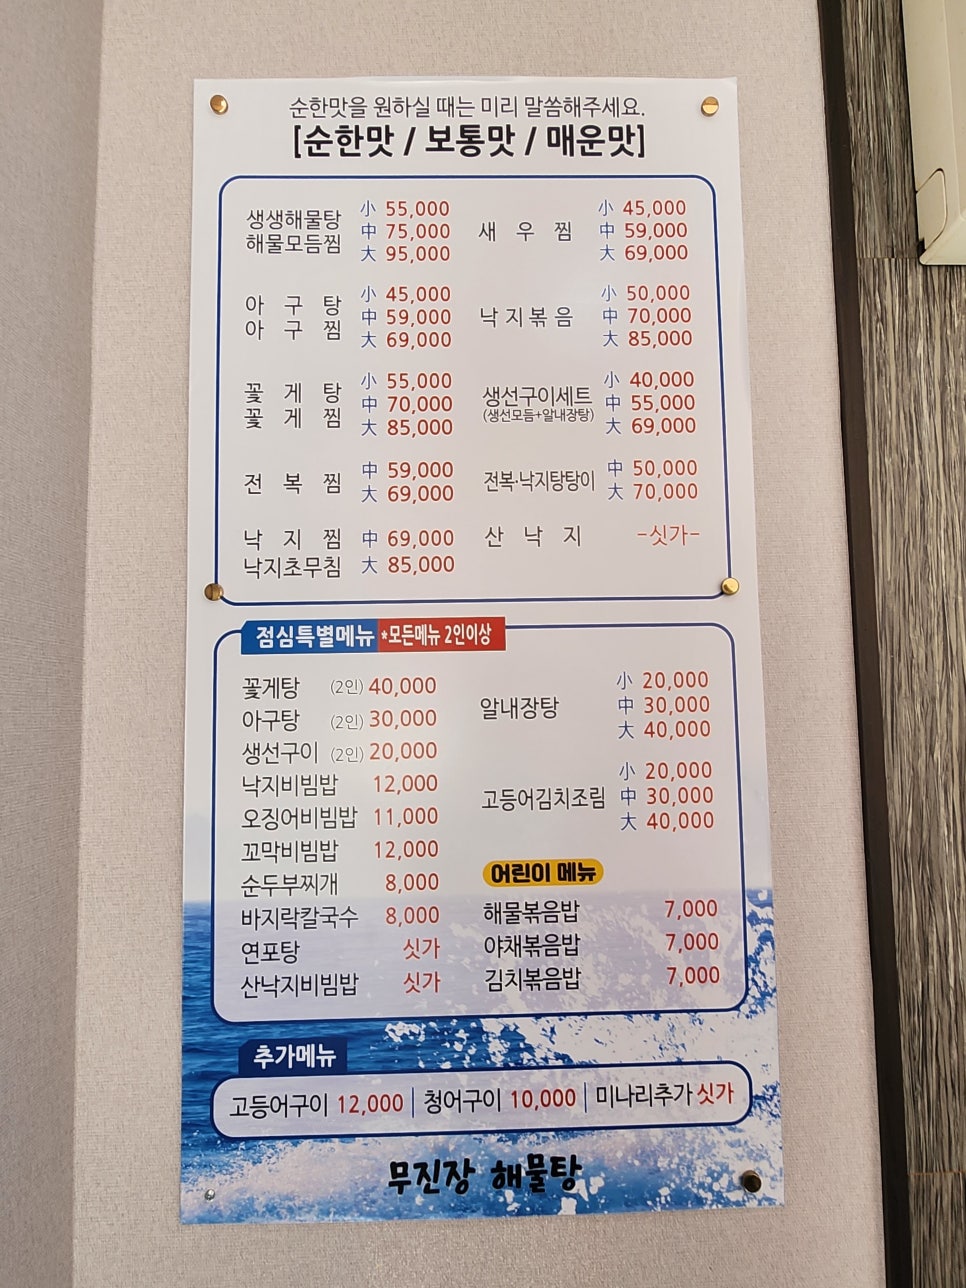 순한맛을 원하실 때는 미리 말씀해주세요.
[순한맛 / 보통맛 / 매운맛]
생생해물탕
해물모듬찜
小 55,000
中 75,000
大 95,000
아 구 탕
아 구 찜
小 45,000
中 59,000
大 69,000
꽃 게 탕
꽃 게 찜
小 55,000
中 70,000
大 85,000
전 복 찜
中 59,000
大 69,000
낙 지 찜 中 69,000
낙지초무침 大 85,000
새 우 찜
小 45,000
中 59,000
大 69,000
낙지볶음
小 50,000
中 70,000
大 85,000
생선구이세트
(생선모듬+알내장탕)
小 40,000
中 55,000
大 69,000
전복·낙지탕탕이
中 50,000
大 70,000
산 낙 지 -싯가-
점심특별메뉴 *모든메뉴 2인이상
꽃게탕 (2인) 40,000
아구탕 (2인) 30,000
생선구이 (2인) 20,000
낙지비빔밥 12,000
오징어비빔밥 11,000
꼬막비빔밥 12,000
순두부찌개 8,000
바지락칼국수 8,000
연포탕 싯가
산낙지비빔밥 싯가
알내장탕
小 20,000
中 30,000
大 40,000
고등어김치조림
小 20,000
中 30,000
大 40,000
어린이 메뉴
해물볶음밥 7,000
야채볶음밥 7,000
김치볶음밥 7,000
추가메뉴
고등어구이 12,000 | 청어구이 10,000 | 미나리추가 싯가
무진장 해물탕